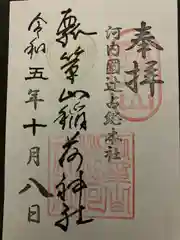 奉拝
河内國辻占総本社
瓢箪山稲荷神社
令和五年十月八日